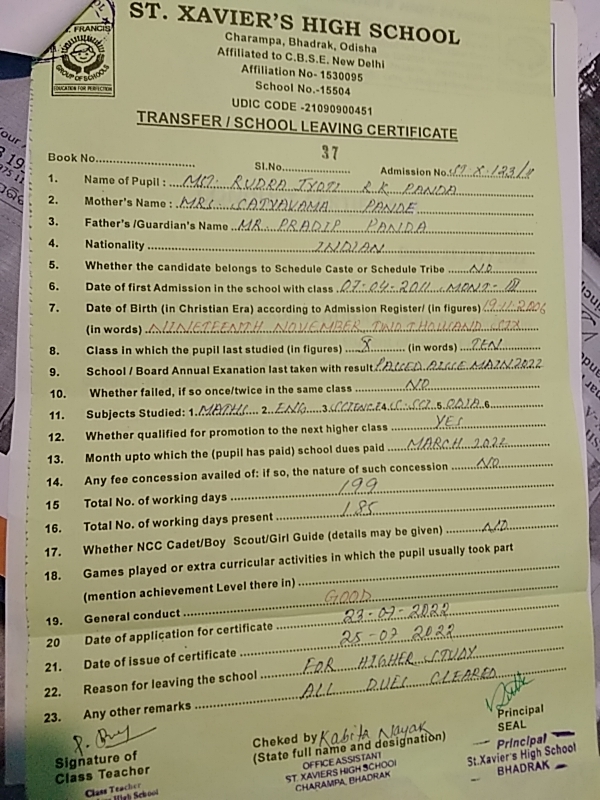 ST. FRANCIS
GROUP OF SCHOOLS
EDUCATION FOR PERFECTION
ST. XAVIER'S HIGH SCHOOL
Charampa, Bhadrak, Odisha
Affiliated to C.B.S.E. New Delhi
Affiliation No- 1530095
School No.-15504
UDIC CODE -21090900451
TRANSFER / SCHOOL LEAVING CERTIFICATE
Book No. Sl.No. 37 Admission No.
1. Name of Pupil : RUDRA JYOTI R.K PANDA
2. Mother's Name : MRS. SATYAVAMA PANDE
3. Father's /Guardian's Name MR. PRADIP PANDA
4. Nationality INDIAN
5. Whether the candidate belongs to Schedule Caste or Schedule Tribe NO
6. Date of first Admission in the school with class 07-04-2011 MONT-III
7. Date of Birth (in Christian Era) according to Admission Register/ (in figures) 19.11.2006
(in words) NINETEENTH NOVEMBER TWO THOUSAND SIX
8. Class in which the pupil last studied (in figures) (in words) TEN
9. School / Board Annual Exanation last taken with result PASSED AISSE MAIN 2022
10. Whether failed, if so once/twice in the same class NO
11. Subjects Studied: 1. MATHS 2. ENG 3. SCIENCE 4. S.SCI 5. ODIA 6.
12. Whether qualified for promotion to the next higher class YES
13. Month upto which the (pupil has paid) school dues paid MARCH 2022
14. Any fee concession availed of: if so, the nature of such concession NO
15 Total No. of working days 199
16. Total No. of working days present 185
17. Whether NCC Cadet/Boy Scout/Girl Guide (details may be given) NO
18. Games played or extra curricular activities in which the pupil usually took part
(mention achievement Level there in)
19. General conduct GOOD
20 Date of application for certificate 23-07-2022
21. Date of issue of certificate 25-07 2022
22. Reason for leaving the school FOR HIGHER STUDY
23. Any other remarks ALL DUES CLEARED
Signature of
Class Teacher
Class Teacher
High School
Cheked by Kabita Nayak
(State full name and designation)
OFFICE ASSISTANT
ST. XAVIERS HIGH SCHOOL
CHARAMPA, BHADRAK
Principal
SEAL
Principal
St.Xavier's High School
BHADRAK